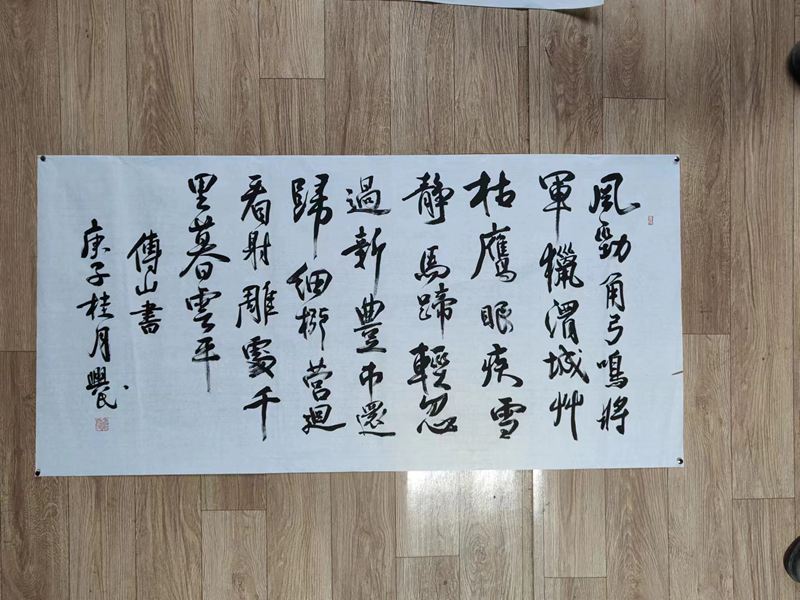 風勁角弓鳴將
軍獵渭城艸
枯鷹眼疾雪
静馬蹄輕忽
過新豐市還
歸細柳營迴
看射雕處千
里暮雲平
傅山書
庚子桂月興民